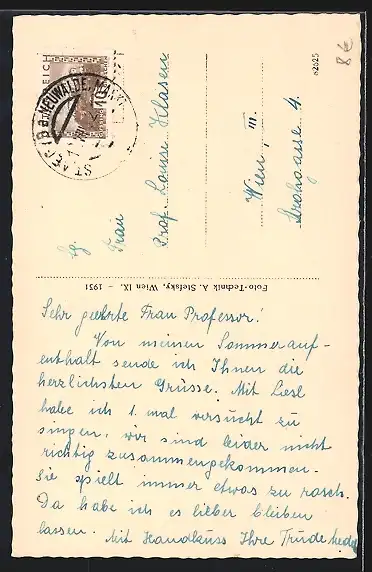 8 €
62625
REICH
ST. AEGYD A. NEUWALDE, MARKT
Sg.
Frau
Prof. Louise Klasen
Wien, III.
4.
Foto-Technik A. Stefsky, Wien IX. – 1931
Sehr geehrte Frau Professor!
Von meinem Sommerauf-
enthalt sende ich Ihnen die
herzlichsten Grüsse. Mit Liesl
habe ich 1. mal versucht zu
singen, wir sind leider nicht
richtig zusammengekommen.
Sie spielt immer etwas zu rasch.
Da habe ich es lieber bleiben
lassen. Mit Handkuss Ihre Trude